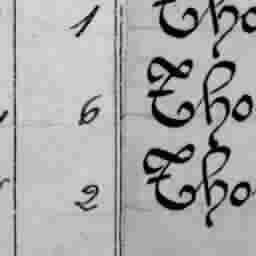 1 Tho
6 Tho
2 Tho